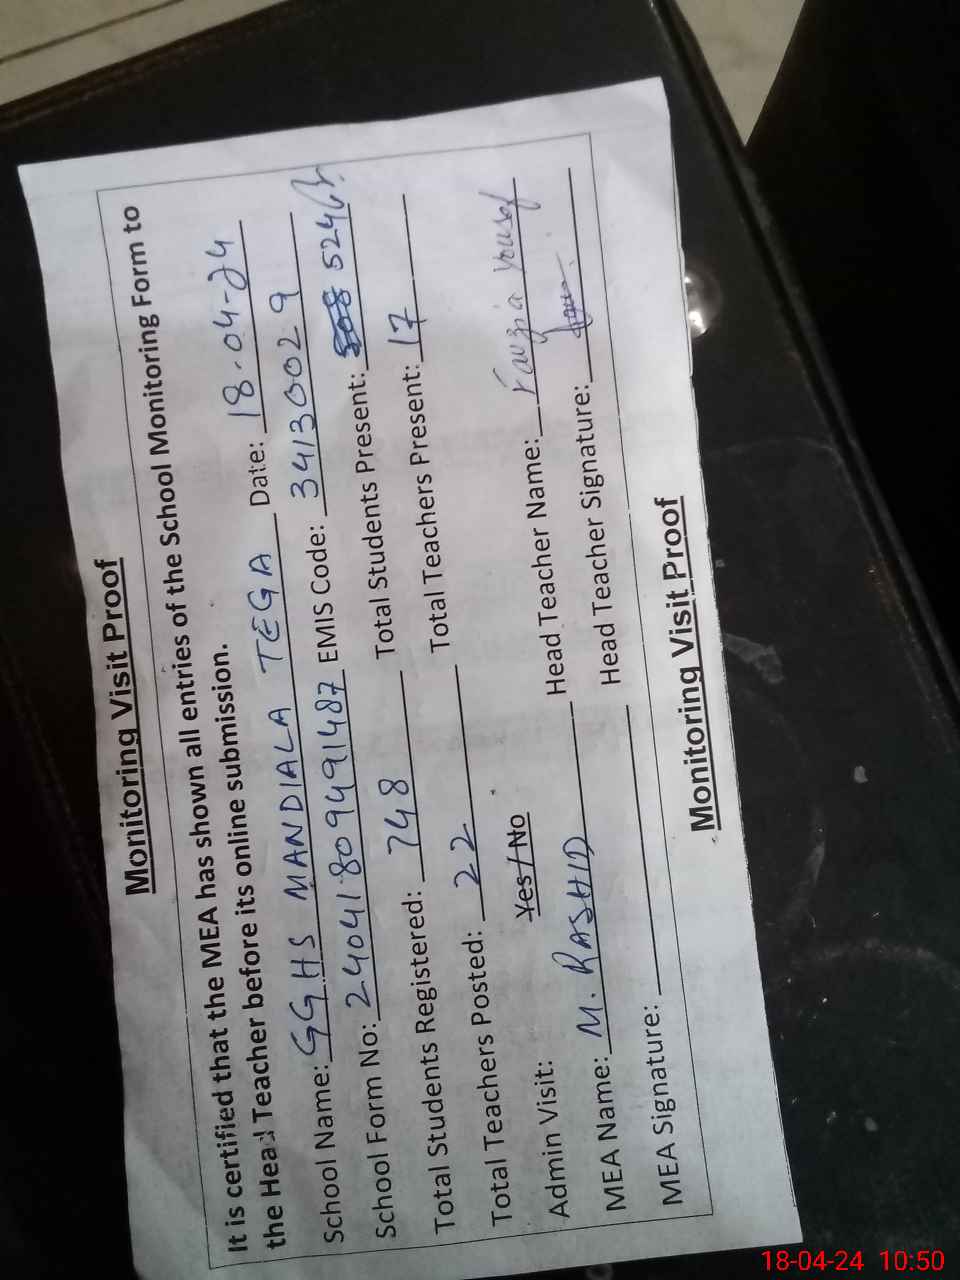 Monitoring Visit Proof
It is certified that the MEA has shown all entries of the School Monitoring Form to
the Head Teacher before its online submission.
School Name: GGHS MANDIALA TEGA Date: 18-04-24
School Form No: 24041809491487 EMIS Code: 34130029
Total Students Registered: 748 Total Students Present: 524
Total Teachers Posted: 22 Total Teachers Present: 17
Admin Visit: Yes / No
MEA Name: M. RASHID Head Teacher Name: Fauzia Yousaf
MEA Signature: Head Teacher Signature:
Monitoring Visit Proof
18-04-24 10:50